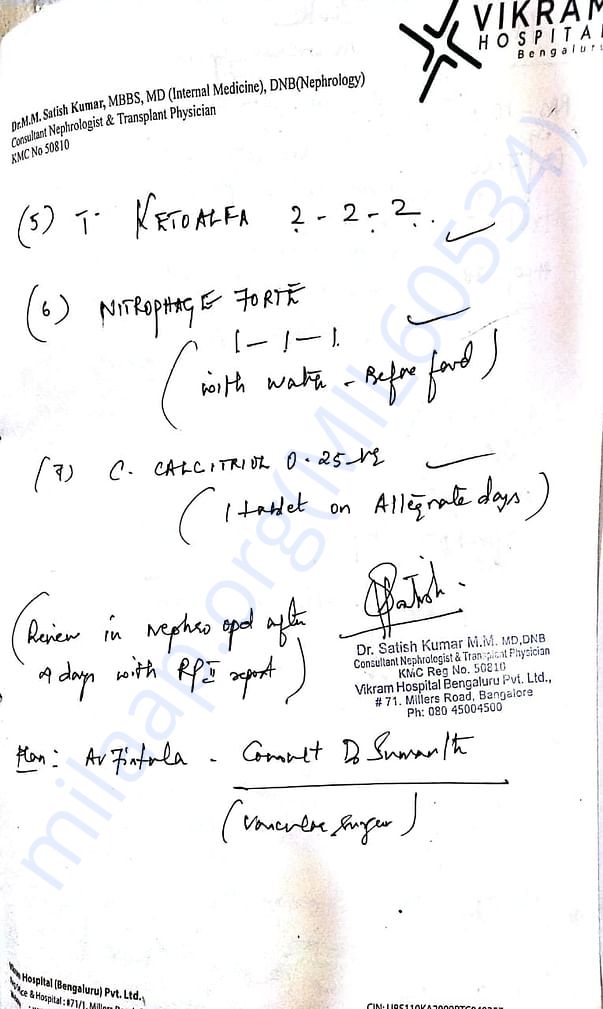 VIKRAM
HOSPITAL
Bengaluru
Dr.M.M. Satish Kumar, MBBS, MD (Internal Medicine), DNB(Nephrology)
Consultant Nephrologist & Transplant Physician
KMC No 50810
(5) T. KETOALFA 2 - 2 - 2.
(6) NITROPHAGE FORTE
1 - 1 - 1.
(with water - Before food)
(7) C. CALCITRIOL 0.25
(1 tablet on Alternate days.)
(Review in nephro opd after
days with RFT report)
Satish
Dr. Satish Kumar M.M. MD,DNB
Consultant Nephrologist & Transplant Physician
KMC Reg No. 50810
Vikram Hospital Bengaluru Pvt. Ltd.,
# 71. Millers Road, Bangalore
Ph: 080 45004500
Plan: AV Fistula - Consult Dr Sumanth
(Vascular Surgeon)
milaap.org(MIL60534)
Hospital (Bengaluru) Pvt. Ltd.,
& Hospital : #71/1, Millers